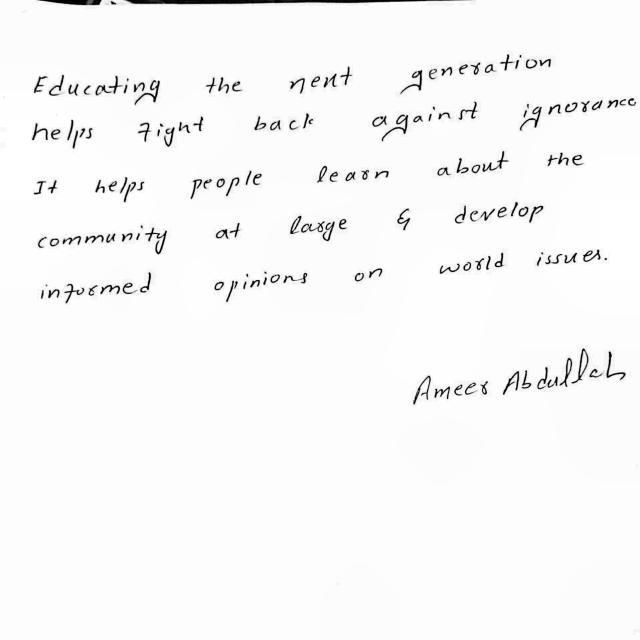 Educating the next generation
helps fight back against ignorance
It helps people learn about the
community at large & develop
informed opinions on world issues.
Ameer Abdullah